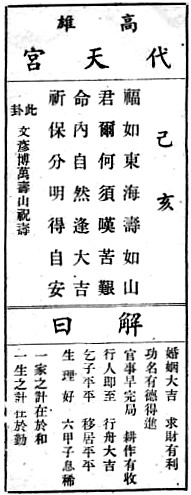 高雄
代天宮
己亥
福如東海壽如山
君爾何須嘆苦艱
命內自然逢大吉
祈保分明得自安
此卦
文彥博萬壽山祝壽
解曰
婚姻大吉　求財有利
功名有德得進
官事早完局　耕作有收
行人即至　行舟大吉
乞子平平　移居平平
生理好　六甲子息稀
一家之計在於和
一生之計在於勤